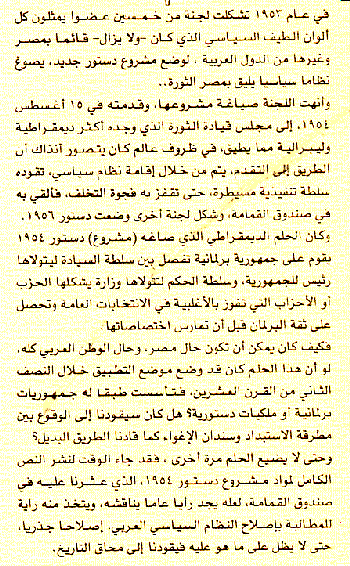 في عام ١٩٥٣ تشكلت لجنة من خمسين عضوا يمثلون كل
ألوان الطيف السياسي الذي كان -ولا يزال- قائما بمصر
وغيرها من الدول العربية ، لوضع مشروع دستور جديد، يصوغ
نظاما سياسيا يليق بمصر الثورة..
وأنهت اللجنة صياغة مشروعها، وقدمته في ١٥ أغسطس
١٩٥٤، إلى مجلس قيادة الثورة الذي وجده أكثر ديمقراطية
وليبرالية مما يطيق، في ظروف عالم كان يتصور آنذاك أن
الطريق إلى التقدم، يتم من خلال إقامة نظام سياسي، تقوده
سلطة تنفيذية مسيطرة، حتى تقفز به فجوة التخلف، فألقي به
في صندوق القمامة، وشكل لجنة أخرى وضعت دستور ١٩٥٦.
وكان الحلم الديمقراطي الذي صاغه (مشروع) دستور ١٩٥٤
يقوم على جمهورية برلمانية تفصل بين سلطة السيادة ليتولاها
رئيس للجمهورية، وسلطة الحكم لتتولاها وزارة يشكلها الحزب
أو الأحزاب التي تفوز بالأغلبية في الانتخابات العامة وتحصل
على ثقة البرلمان قبل أن تمارس اختصاصاتها.
فكيف كان يمكن أن تكون حال مصر، وحال الوطن العربي كله،
لو أن هذا الحلم كان قد وضع موضع التطبيق خلال النصف
الثاني من القرن العشرين، فتأسست طبقا له جمهوريات
برلمانية أو ملكيات دستورية؟ هل كان سيقودنا إلى الوقوع بين
مطرقة الاستبداد وسندان الإغواء كما قادنا الطريق البديل؟
وحتى لا يضيع الحلم مرة أخرى ، فقد جاء الوقت لنشر النص
الكامل لمواد مشروع دستور ١٩٥٤، الذي عثرنا عليه في
صندوق القمامة، لعله يجد رأيا عاما يناقشه، ويتخذ منه راية
للمطالبة بإصلاح النظام السياسي العربي، إصلاحا جذريا،
حتى لا يظل على ما هو عليه فيقودنا إلى محاق التاريخ.